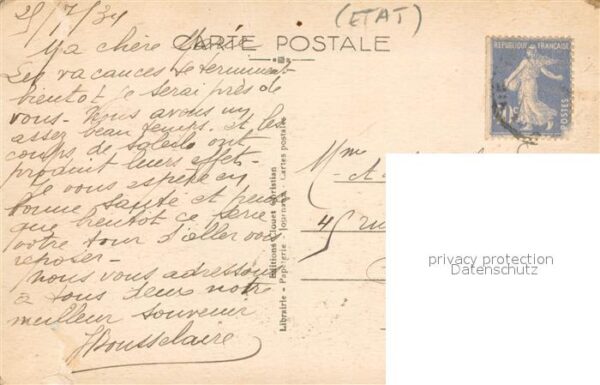 25/7/34
(ETAT)
CARTE POSTALE
Ma chère
Les vacances se terminent
bientôt je serai près de
vous - Nous avons un
assez beau temps et les
coups de soleil ont
produit leurs effets -
Je vous espère en
bonne santé et pense
que bientôt ce sera
votre tour d'aller vous
reposer -
Nous vous adressons
à tous deux notre
meilleur souvenir
REPUBLIQUE FRANÇAISE
POSTES
Mme
45 rue
Editions Jouet Christian
Librairie - Papeterie - Journaux - Cartes postales
privacy protection
Datenschutz